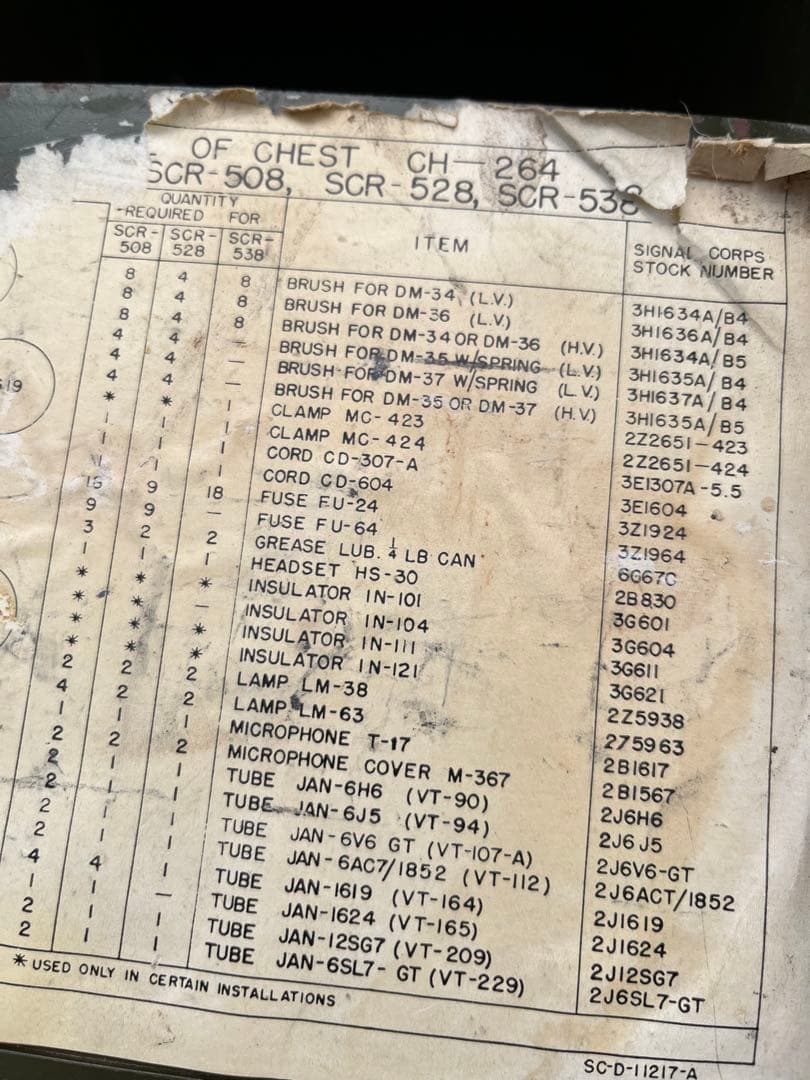 OF CHEST CH-264
SCR-508, SCR-528, SCR-538
QUANTITY
-REQUIRED FOR
SCR-508 SCR-528 SCR-538 ITEM SIGNAL CORPS STOCK NUMBER
8 4 8 BRUSH FOR DM-34 (L.V.) 3H1634A/B4
8 4 8 BRUSH FOR DM-36 (L.V.) 3H1636A/B4
8 4 8 BRUSH FOR DM-34 OR DM-36 (H.V.) 3H1634A/B5
4 4 — BRUSH FOR DM-35 W/SPRING (L.V.) 3H1635A/B4
4 4 — BRUSH FOR DM-37 W/SPRING (L.V.) 3H1637A/B4
4 4 — BRUSH FOR DM-35 OR DM-37 (H.V.) 3H1635A/B5
* * 1 CLAMP MC-423 2Z2651-423
1 1 1 CLAMP MC-424 2Z2651-424
1 1 1 CORD CD-307-A 3E1307A-5.5
1 1 1 CORD CD-604 3E1604
18 9 18 FUSE FU-24 3Z1924
9 9 — FUSE FU-64 3Z1964
3 2 2 GREASE LUB. 1/4 LB CAN 6G67C
1 1 1 HEADSET HS-30 2B830
* * * INSULATOR IN-101 3G601
* * — INSULATOR IN-104 3G604
* * * INSULATOR IN-111 3G611
* * * INSULATOR IN-121 3G621
2 2 2 LAMP LM-38 2Z5938
4 2 2 LAMP LM-63 2Z5963
1 1 1 MICROPHONE T-17 2B1617
2 2 2 MICROPHONE COVER M-367 2B1567
2 1 1 TUBE JAN-6H6 (VT-90) 2J6H6
2 1 1 TUBE JAN-6J5 (VT-94) 2J6J5
2 1 1 TUBE JAN-6V6 GT (VT-107-A) 2J6V6-GT
2 1 1 TUBE JAN-6AC7/1852 (VT-112) 2J6AC7/1852
4 4 1 TUBE JAN-1619 (VT-164) 2J1619
1 1 — TUBE JAN-1624 (VT-165) 2J1624
2 1 1 TUBE JAN-12SG7 (VT-209) 2J12SG7
2 1 1 TUBE JAN-6SL7-GT (VT-229) 2J6SL7-GT
* USED ONLY IN CERTAIN INSTALLATIONS
SC-D-11217-A